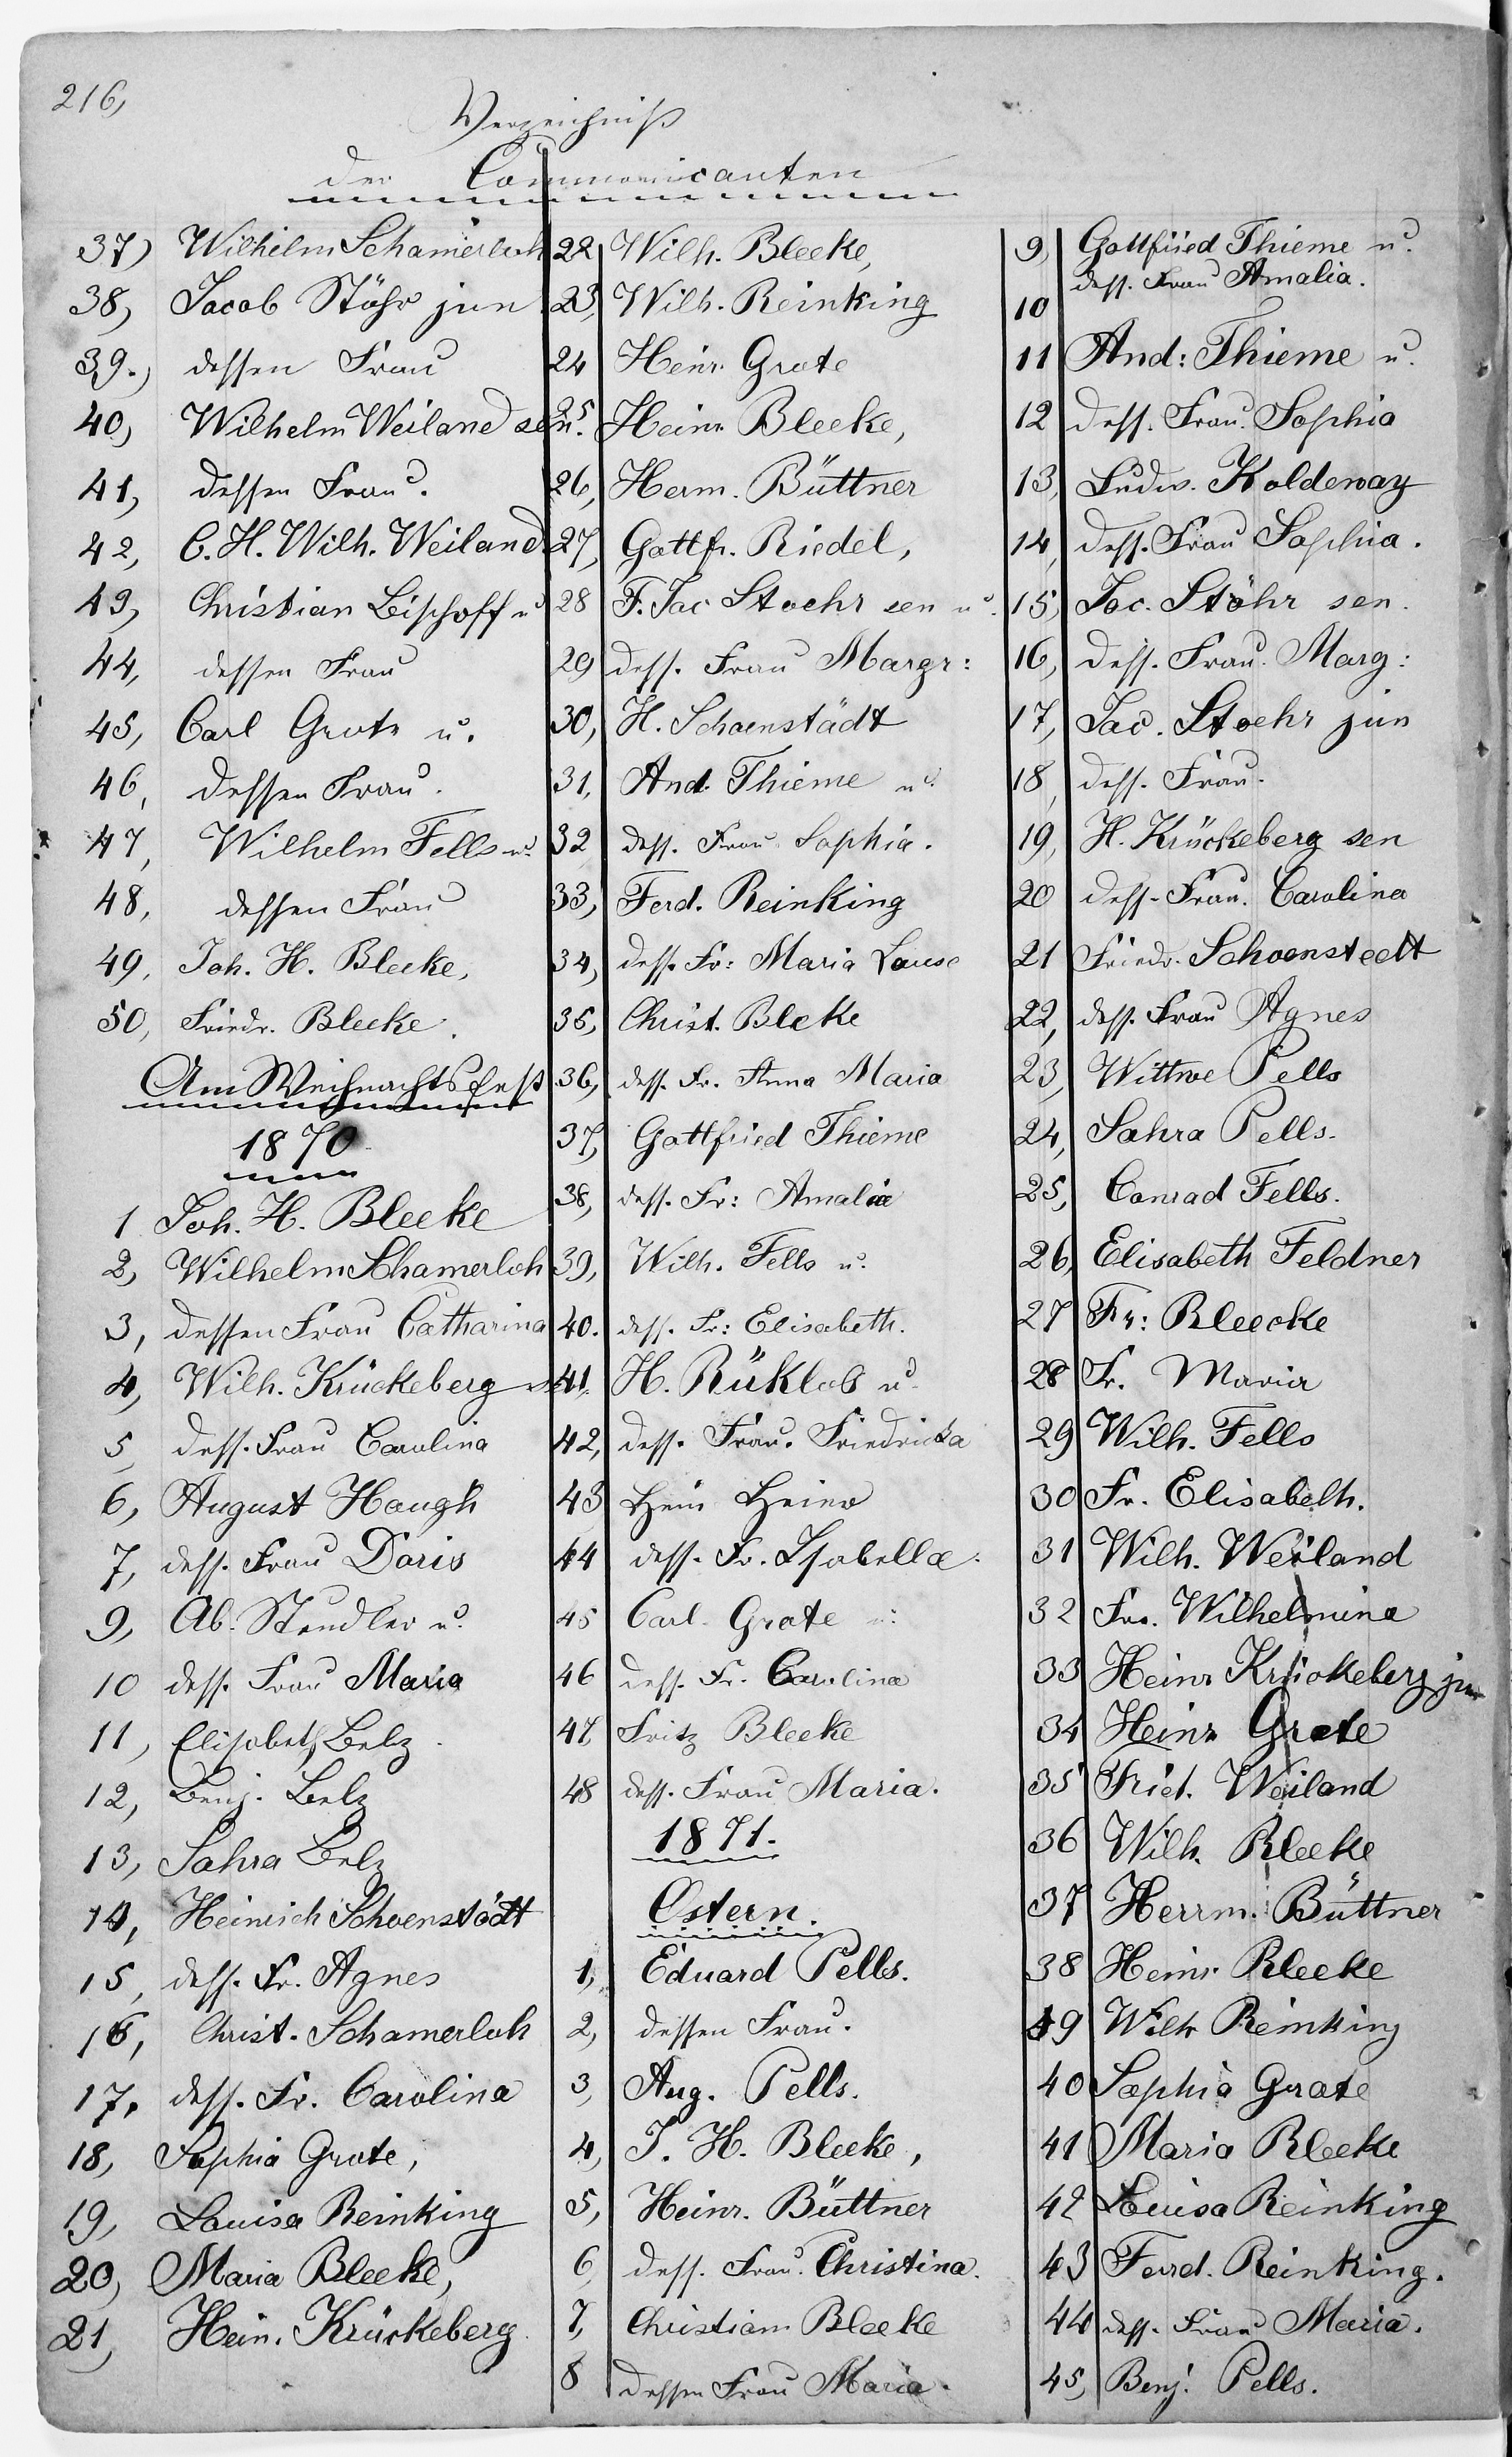 216,
Verzeichniß
der Communicanten
37) Wilhelm Schamerloh
38, Jacob Stöhr jun
39., dessen Frau
40, Wilhelm Weiland sen.
41, dessen Frau.
42, C. H. Wilh. Weiland
43, Christian Bischoff u
44, dessen Frau
45, Carl Grote u.
46, dessen Frau.
47, Wilhelm Fells u.
48, dessen Frau
49, Joh. H. Blecke,
50, Friedr. Blecke.
Am Weihnachtsfest
1870
1 Joh. H. Bleeke
2, Wilhelm Schamerloh
3, dessen Frau Catharina
4, Wilh. Krückeberg u
5, dess. Frau Carolina
6, August Haugk
7, dess. Frau Doris
9, Ab. Stendler u.
10 dess. Frau Maria
11, Elisabeth Belz.
12, Benj. Belz
13, Sahra Belz
14, Heinrich Schoenstädt
15, dess. Fr. Agnes
16, Christ. Schamerloh
17. dess. Fr. Carolina
18, Sophia Grote,
19, Louisa Reinking
20, Maria Bleeke,
21, Hein. Krückeberg.
22 Wilh. Bleeke,
23, Wilh. Reinking
24 Heinr. Grote
25. Heinr Bleeke,
26, Herm. Büttner
27, Gottfr. Riedel,
28 F. Jac Stoehr sen u.
29 dess. Frau Margr:
30, H. Schoenstädt
31, And. Thieme u.
32 dess. Frau Sophia.
33, Ferd. Reinking
34, dess. Fr: Maria Louse
35, Christ. Bleke
36, dess. Fr. Anna Maria
37, Gottfried Thieme
38, dess. Fr: Amalia
39, Wilh. Fells u.
40. dess. Fr: Elisabeth.
41. H. Rüklos u.
42, dess. Frau. Friedricka
43 Hein Heine
44 dess. Fr. Isabella.
45 Carl Grote u:
46 dess. Fr. Carolina
47 Fritz Bleeke
48 dess. Frau Maria.
1871.
Ostern.
1, Eduard Pells.
2, dessen Frau.
3, Aug. Pells.
4, J. H. Bleeke,
5, Heinr. Büttner
6, dess. Frau. Christina.
7, Christian Bleeke
8 dessen Frau Maria.
9, Gottfried Thieme u.
dess. Frau Amalia.
10
11 And: Thieme u.
12 dess. Frau. Sophia
13, Ludw. Koldeway
14, dess. Frau Sophia.
15, Jac. Stöhr sen.
16, dess. Frau. Marg:
17, Jac. Stoehr jun
18, dess. Frau.
19, H. Krückeberg sen
20 dess. Frau. Carolina
21 Friedr. Schoenstedt
22, dess. Frau Agnes
23, Wittwe Pells
24, Sahra Pells.
25, Conrad Fells.
26, Elisabeth Feldner
27 Fr: Bleecke
28 Fr. Maria
29 Wilh. Fells
30 Fr. Elisabeth.
31 Wilh. Weiland
32 Fr. Wilhelmine
33 Heinr Krückeberg jun
34 Heinr Grote
35 Fried. Weiland
36 Wilh. Bleeke
37 Herrm. Büttner
38 Heinr. Bleeke
49 Wilh Reinking
40 Sophia Grote
41 Maria Bleeke
42 Louisa Reinking
43 Ferd. Reinking.
44 dess. Frau Maria.
45, Benj. Pells.